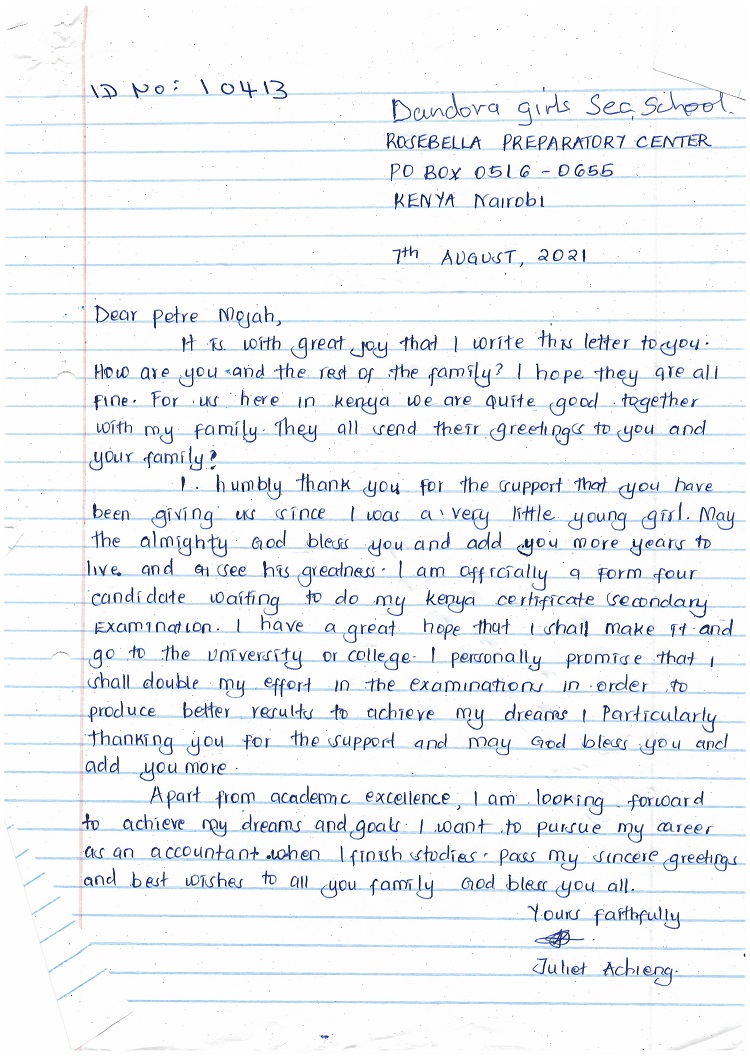 ID No: 10413
Dandora girls Sec School.
ROSEBELLA PREPARATORY CENTER
PO BOX 0516 - 0655
KENYA Nairobi
7th AUGUST, 2021
Dear Petre Mejah,
It is with great joy that I write this letter to you.
How are you and the rest of the family? I hope they are all
fine. For us here in Kenya we are quite good together
with my family. They all send their greetings to you and
your family?
I. humbly thank you for the support that you have
been giving us since I was a very little young girl. May
the almighty God bless you and add you more years to
live and see his greatness. I am officially a form four
candidate waiting to do my Kenya certificate secondary
Examination. I have a great hope that I shall make it and
go to the University or college. I personally promise that I
shall double my effort in the examinations in order to
produce better results to achieve my dreams I Particularly
thanking you for the support and may God bless you and
add you more.
Apart from academic excellence, I am looking forward
to achieve my dreams and goals. I want to pursue my career
as an accountant when I finish studies. Pass my sincere greetings
and best wishes to all you family God bless you all.
Yours faithfully
Juliet Achieng.